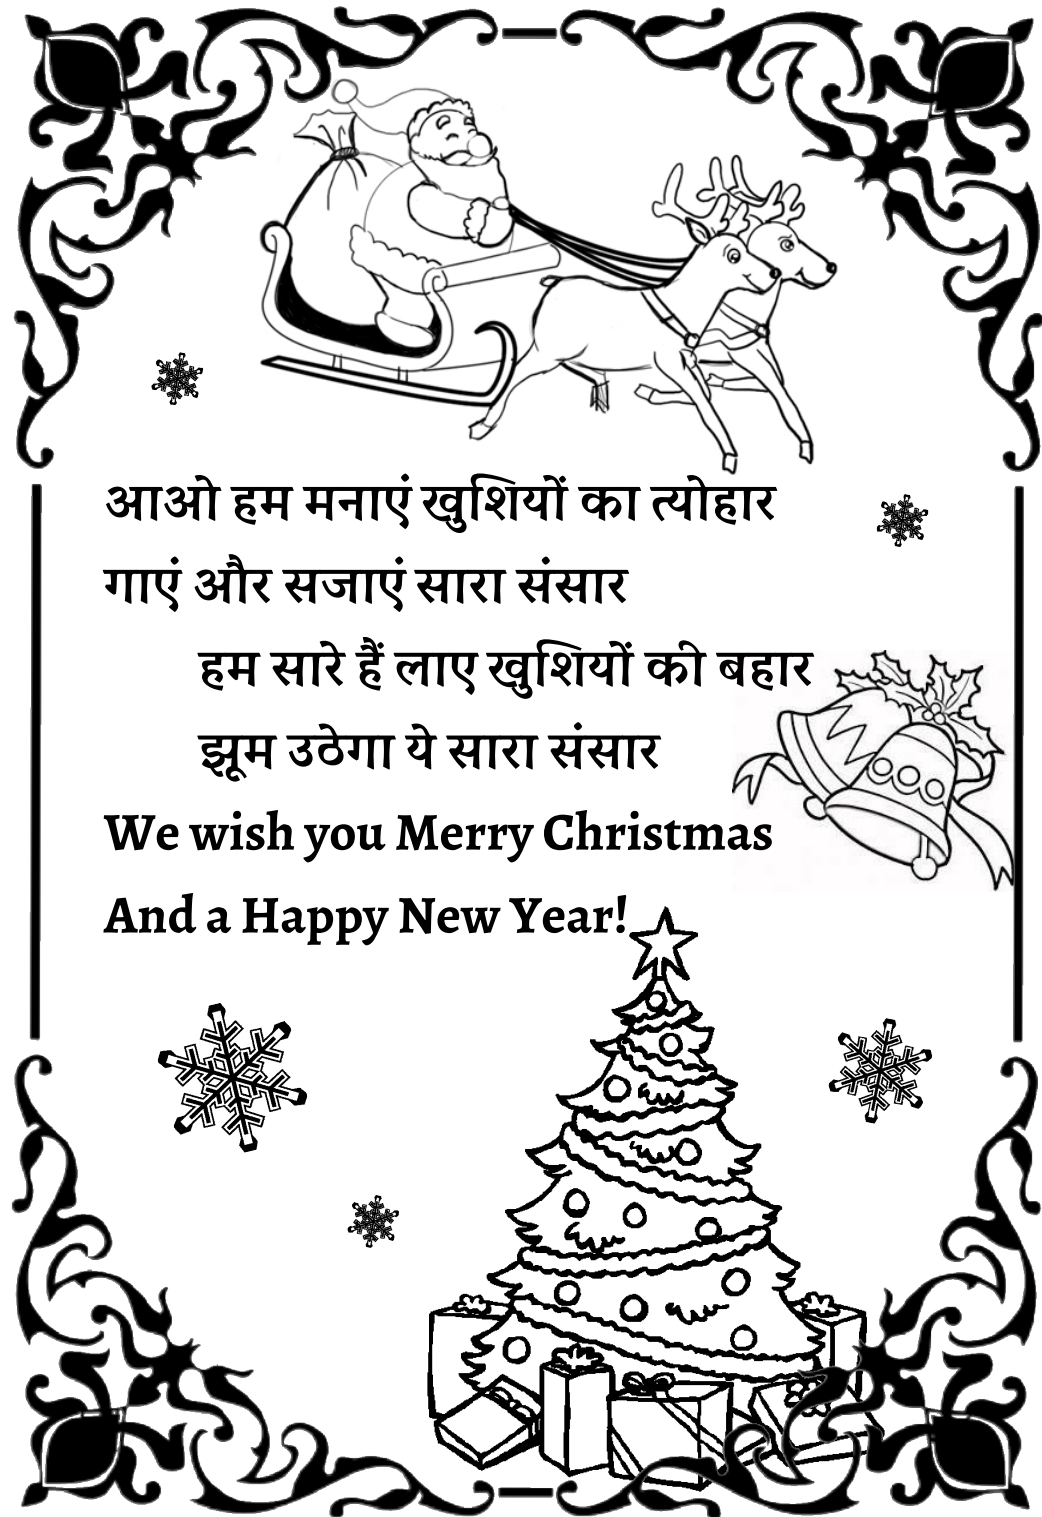 आओ हम मनाएं खुशियों का त्योहार
गाएं और सजाएं सारा संसार
हम सारे हैं लाए खुशियों की बहार
झूम उठेगा ये सारा संसार
We wish you Merry Christmas
And a Happy New Year!